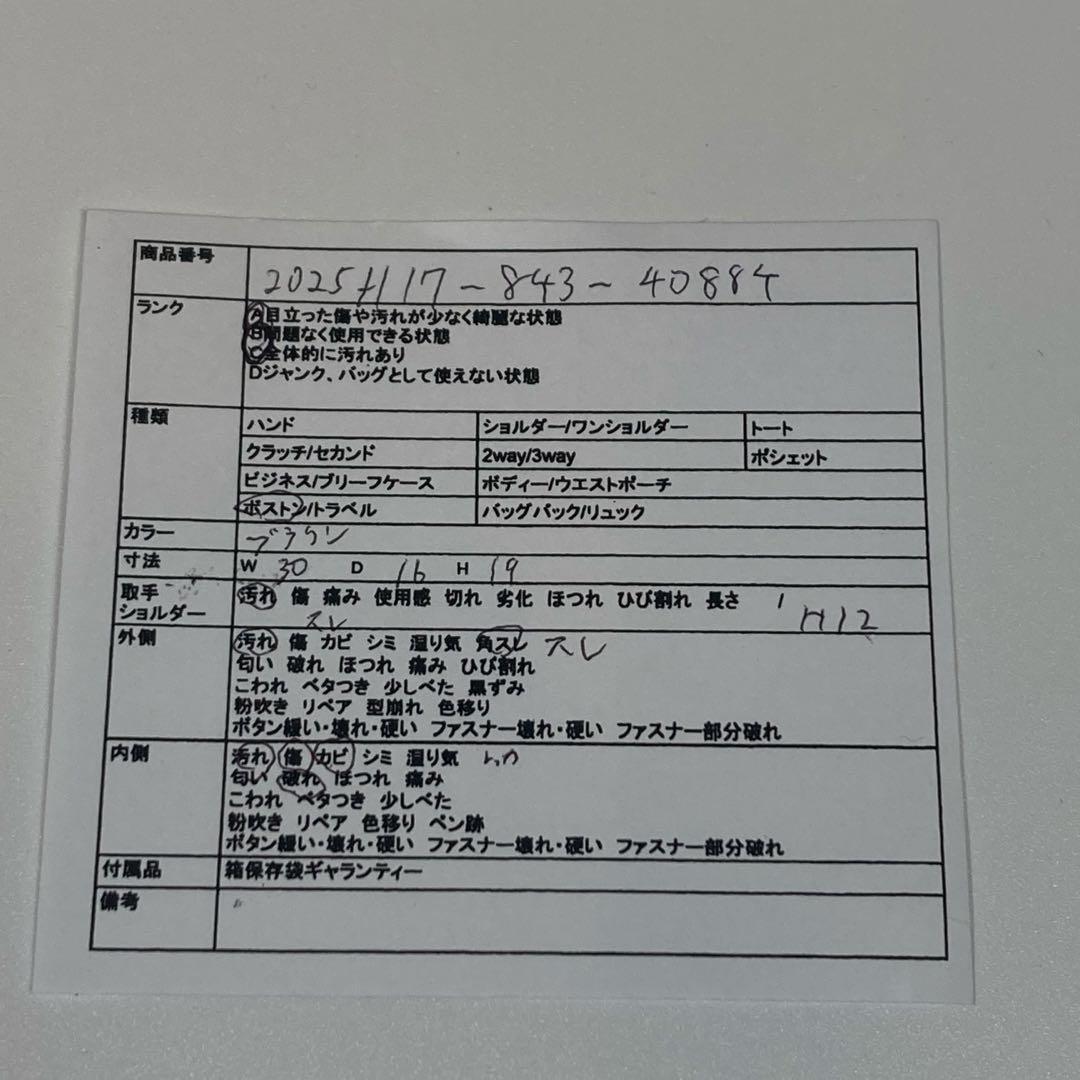 商品番号 2025H117-843-40884
ランク A目立った傷や汚れが少なく綺麗な状態
B問題なく使用できる状態
C全体的に汚れあり
Dジャンク、バッグとして使えない状態
種類 ハンド ショルダー/ワンショルダー トート
クラッチ/セカンド 2way/3way ポシェット
ビジネス/ブリーフケース ボディー/ウエストポーチ
ボストン/トラベル バッグパック/リュック
カラー ブラウン
寸法 W 30 D 16 H 19
取手 汚れ 傷 痛み 使用感 切れ 劣化 ほつれ ひび割れ 長さ
ショルダー スレ H12
外側 汚れ 傷 カビ シミ 湿り気 角スレ スレ
匂い 破れ ほつれ 痛み ひび割れ
こわれ ベタつき 少しべた 黒ずみ
粉吹き リペア 型崩れ 色移り
ボタン緩い・壊れ・硬い ファスナー壊れ・硬い ファスナー部分破れ
内側 汚れ 傷 カビ シミ 湿り気
匂い 破れ ほつれ 痛み
こわれ ベタつき 少しべた
粉吹き リペア 色移り ペン跡
ボタン緩い・壊れ・硬い ファスナー壊れ・硬い ファスナー部分破れ
付属品 箱保存袋ギャランティー
備考